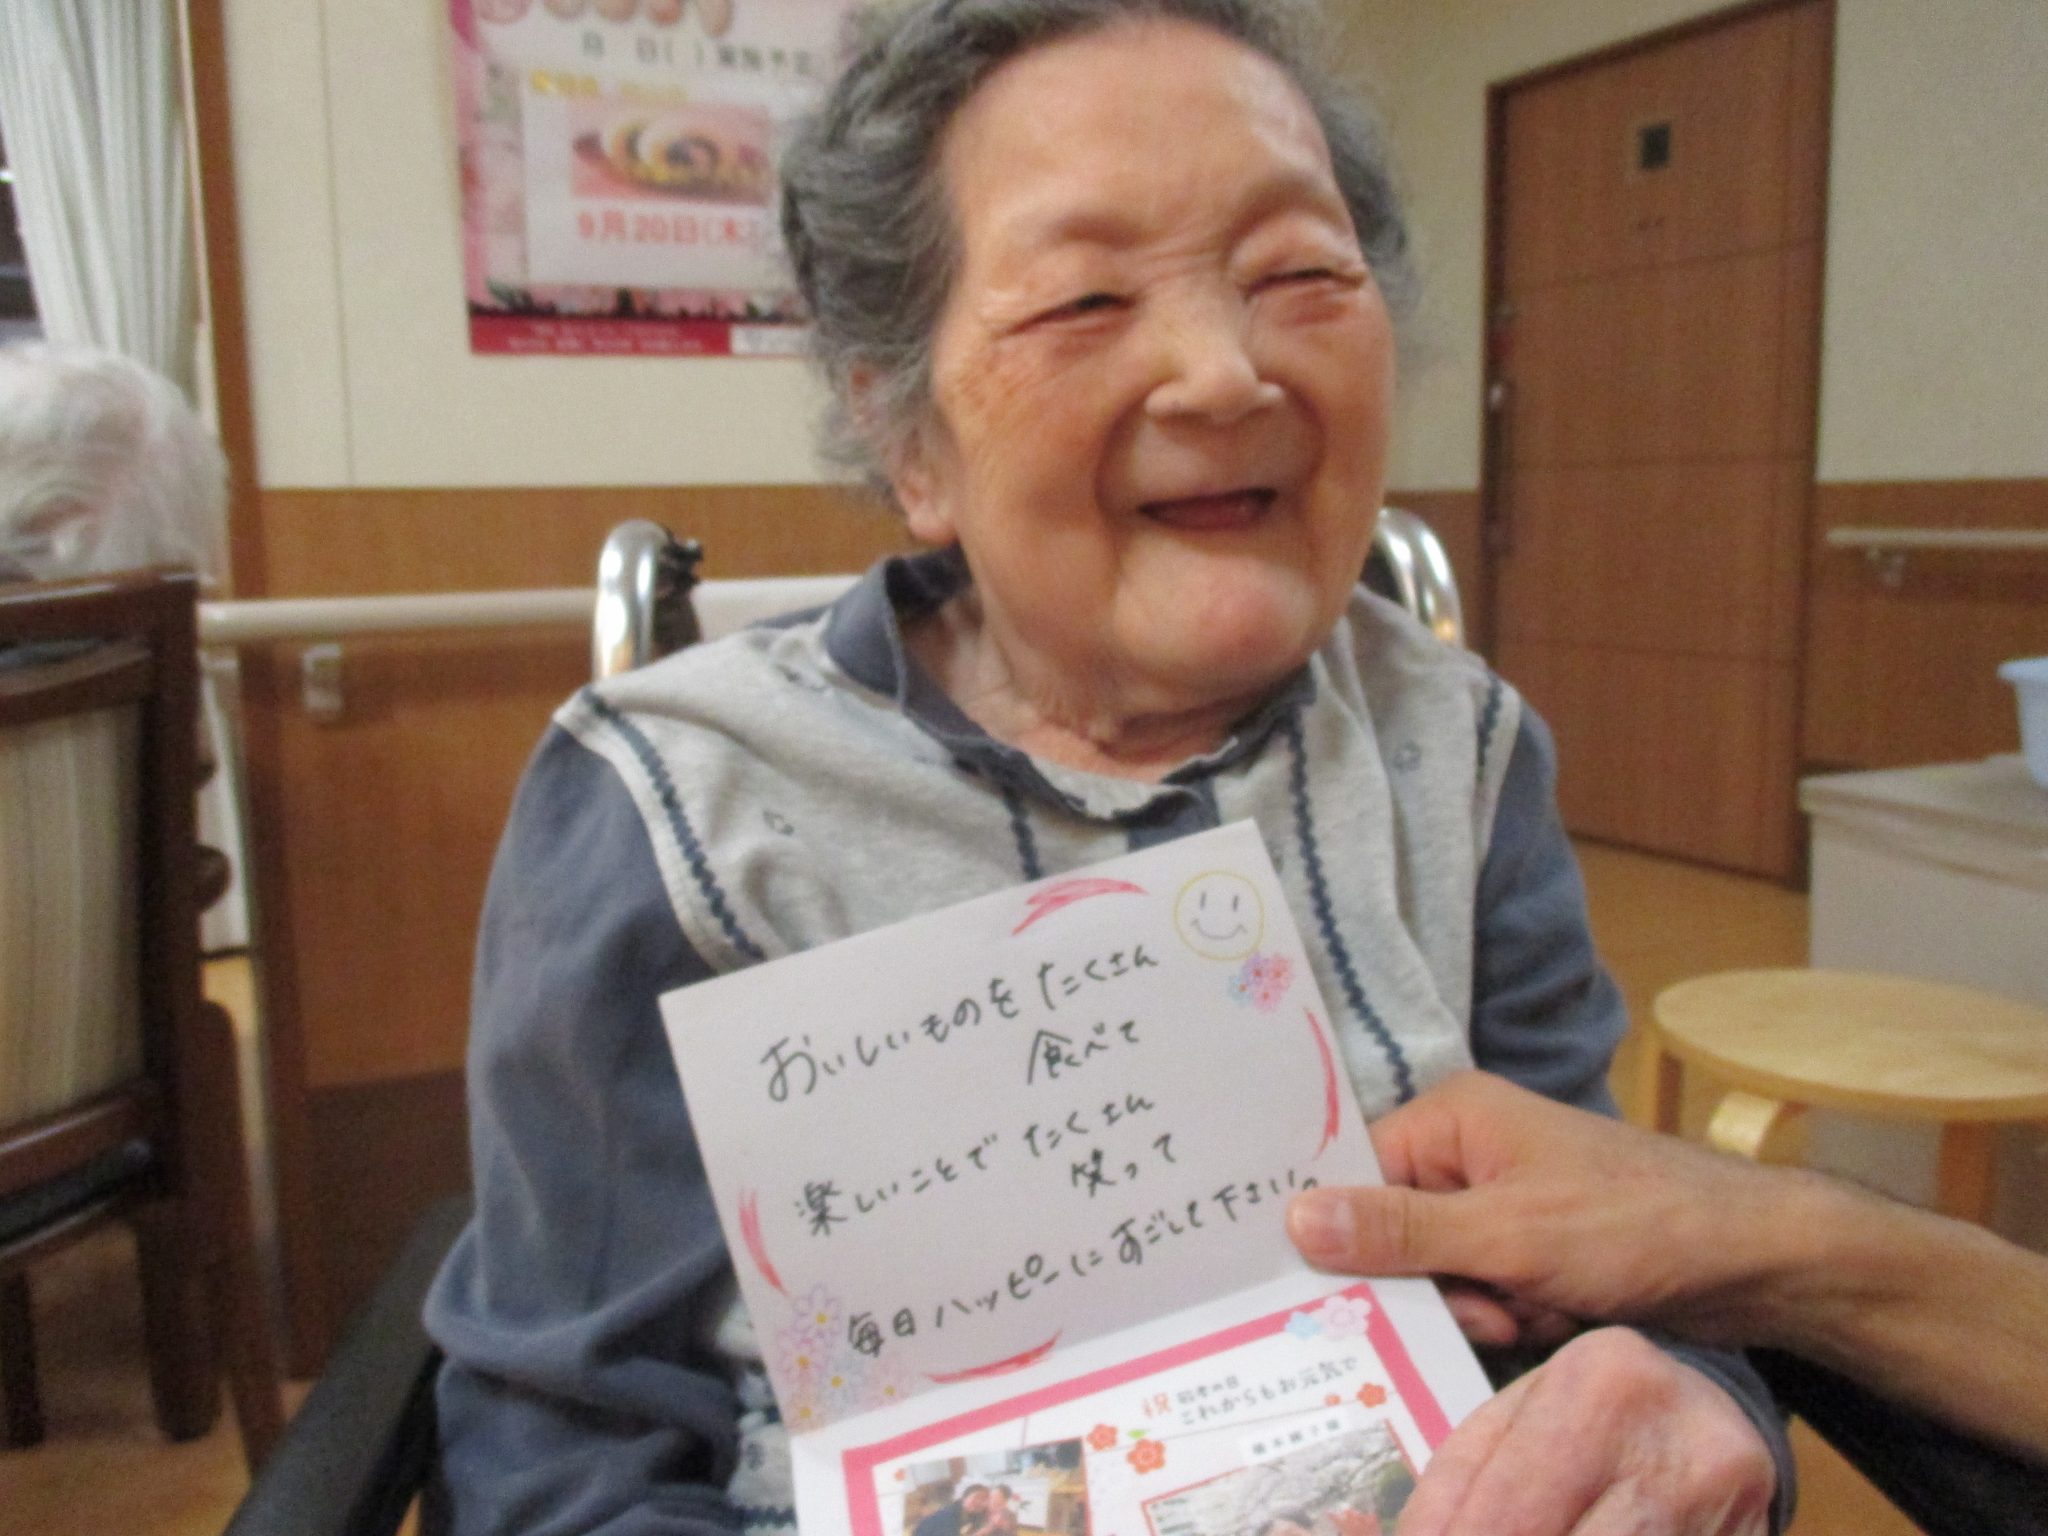 9月20日(木)
おいしいものを たくさん
食べて
楽しいことで たくさん
笑って
毎日ハッピーに すごして下さい。
祝 敬老の日
これからもお元気で